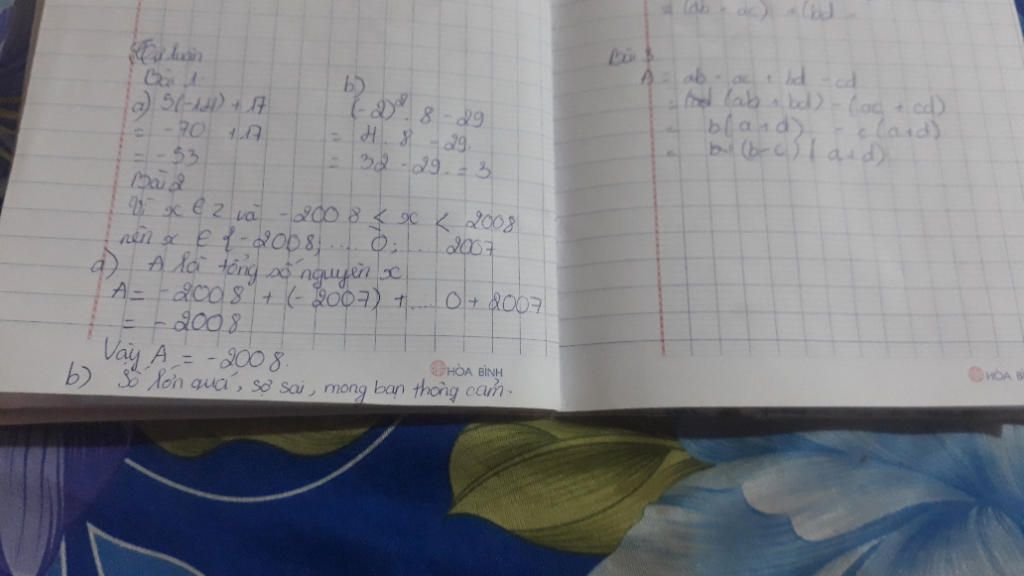 Tự luận
Bài 1
a) 5(-14) + 17
= -70 + 17
= -53
b)
(-2)² . 8 - 29
= 4 . 8 - 29
= 32 - 29 = 3
Bài 2
Vì x ∈ Z và -2008 ≤ x < 2008
nên x ∈ {-2008; .... 0; ... 2007
a) A là tổng số nguyên x
A = -2008 + (-2007) + ... 0 + 2007
= -2008
Vậy A = -2008.
b) Số lớn quá, sợ sai, mong bạn thông cảm.
HÒA BÌNH
= (ab - ac) + (bd -
Bài 3
A = ab - ac + bd - cd
= (ab + bd) - (ac + cd)
= b(a+d) - c(a+d)
= (b-c)(a+d)
HÒA B